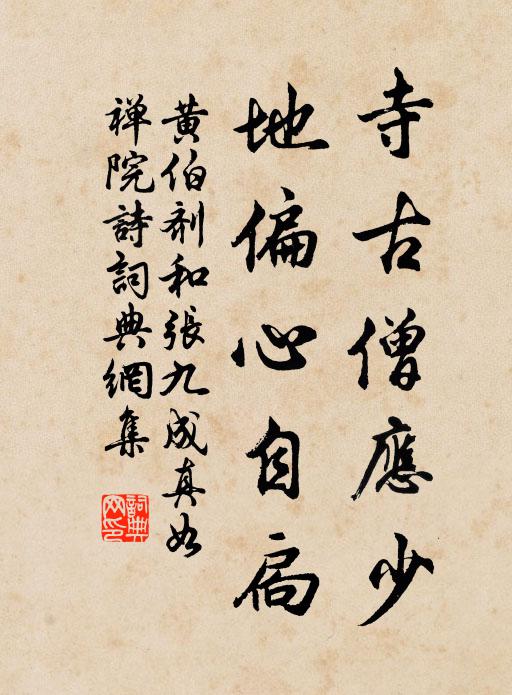 寺古僧應少
地偏心自扃
黄伯剂和張九成真如
禅院詩詞典網集
詞典
网印